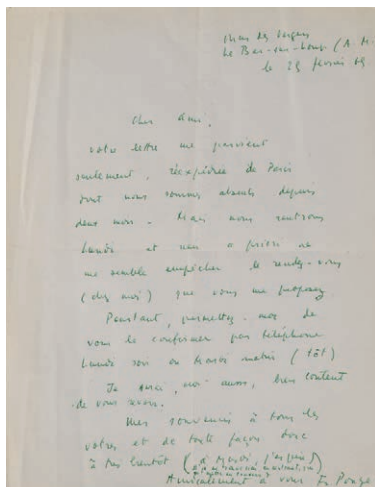 Mas des Vergers
Le Bar-sur-Loup (A.M.
le 25 février 69
Cher Ami,
votre lettre me parvient
seulement, réexpédiée de Paris
dont nous sommes absents depuis
deux mois - Mais nous rentrons
lundi et rien a priori ne
me semble empêcher le rendez-vous
(chez moi) que vous me proposez
Pourtant, permettez-moi de
vous le confirmer par téléphone
lundi soir ou Mardi matin (tôt)
Je serai, moi aussi, bien content
de vous revoir.
Mes souvenirs à tous les
vôtres et de toute façon donc
à très bientôt (à Mardi, j'espère)
Amicalement à vous Fr Ponge